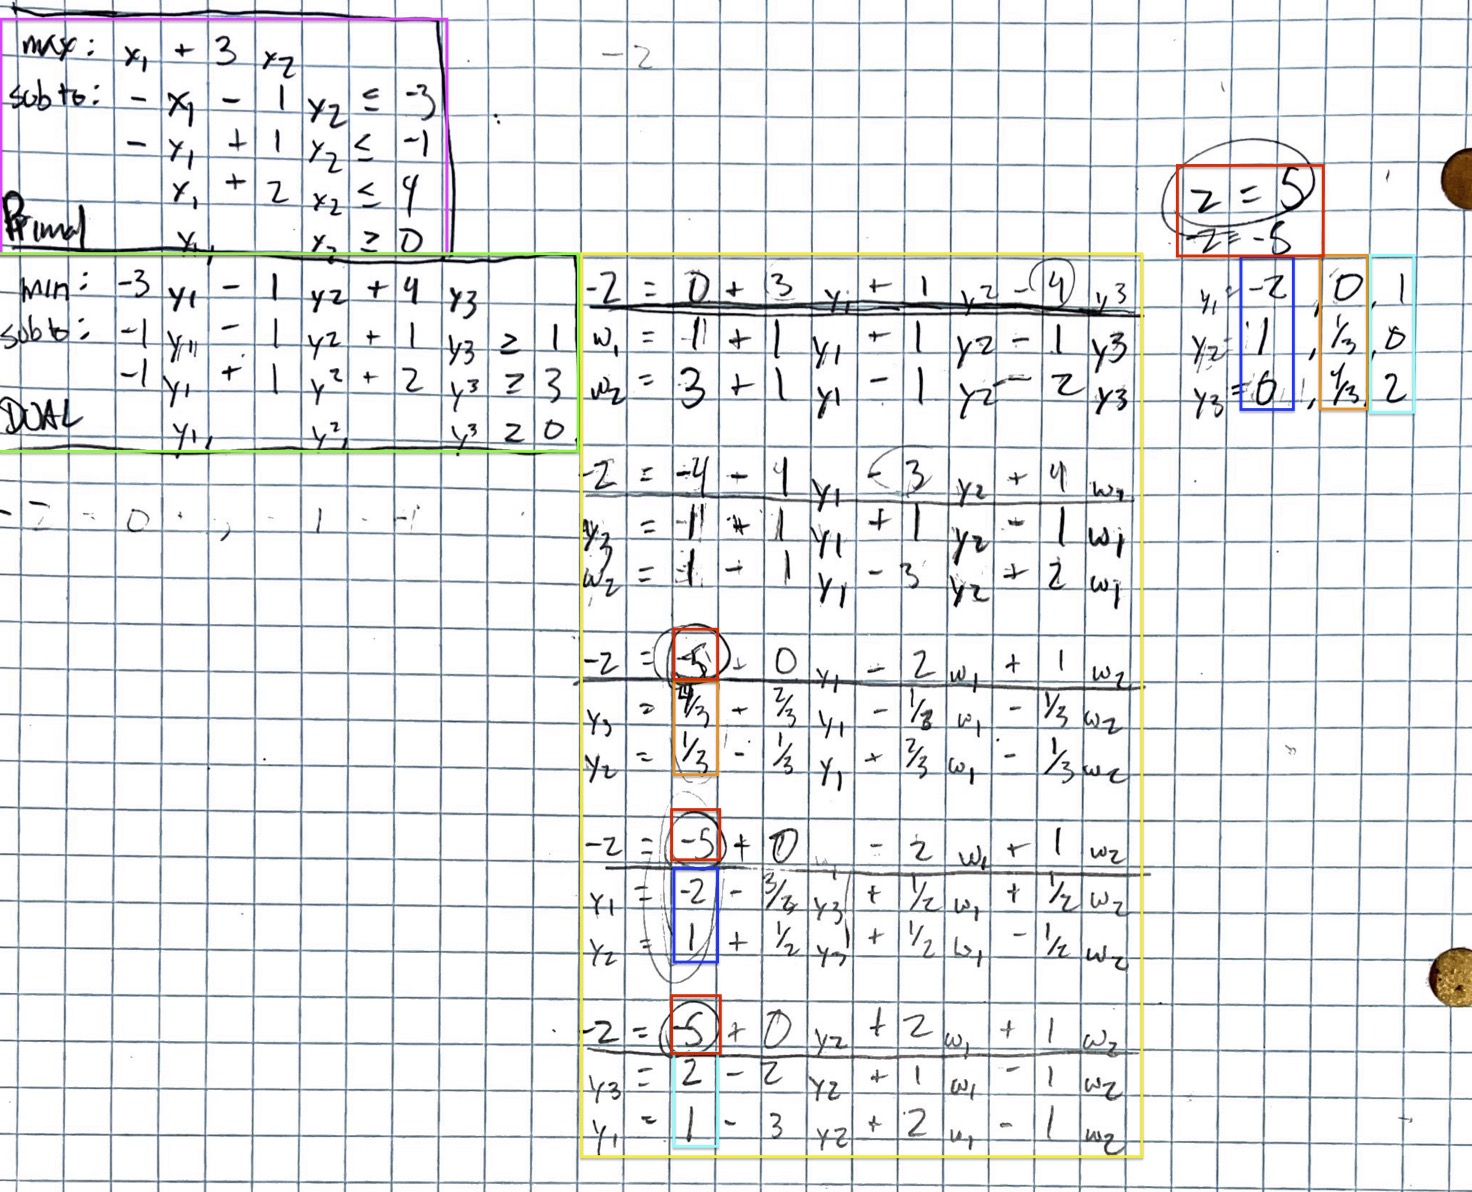 max: x₁ + 3 x₂
sub to: - x₁ - 1 x₂ ≤ -3
- x₁ + 1 x₂ ≤ -1
x₁ + 2 x₂ ≤ 4
Primal x₁, x₂ ≥ 0
min: -3 y₁ - 1 y₂ + 4 y₃
sub to: -1 y₁ - 1 y₂ + 1 y₃ ≥ 1
-1 y₁ + 1 y₂ + 2 y₃ ≥ 3
DUAL y₁, y₂, y₃ ≥ 0
-2
-z = 0 + 3 y₁ + 1 y₂ - 4 y₃
w₁ = -1 + 1 y₁ + 1 y₂ - 1 y₃
w₂ = 3 + 1 y₁ - 1 y₂ - 2 y₃
-z = -4 - 4 y₁ - 3 y₂ + 4 w₁
y₃ = -1 + 1 y₁ + 1 y₂ - 1 w₁
w₂ = 1 - 1 y₁ - 3 y₂ + 2 w₁
-z = -5 + 0 y₁ - 2 w₁ + 1 w₂
y₃ = 4/3 + 2/3 y₁ - 1/3 w₁ - 1/3 w₂
y₂ = 1/3 - 1/3 y₁ + 2/3 w₁ - 1/3 w₂
-z = -5 + 0 - 2 w₁ + 1 w₂
y₁ = -2 - 3/2 y₃ + 1/2 w₁ + 1/2 w₂
y₂ = 1 + 1/2 y₃ + 1/2 w₁ - 1/2 w₂
-z = -5 + 0 y₂ + 2 w₁ + 1 w₂
y₃ = 2 - 2 y₂ + 1 w₁ - 1 w₂
y₁ = 1 - 3 y₂ + 2 w₁ - 1 w₂
z = 5
-z = -5
y₁ = -2, 0, 1
y₂ = 1, 1/3, 0
y₃ = 0, 4/3, 2